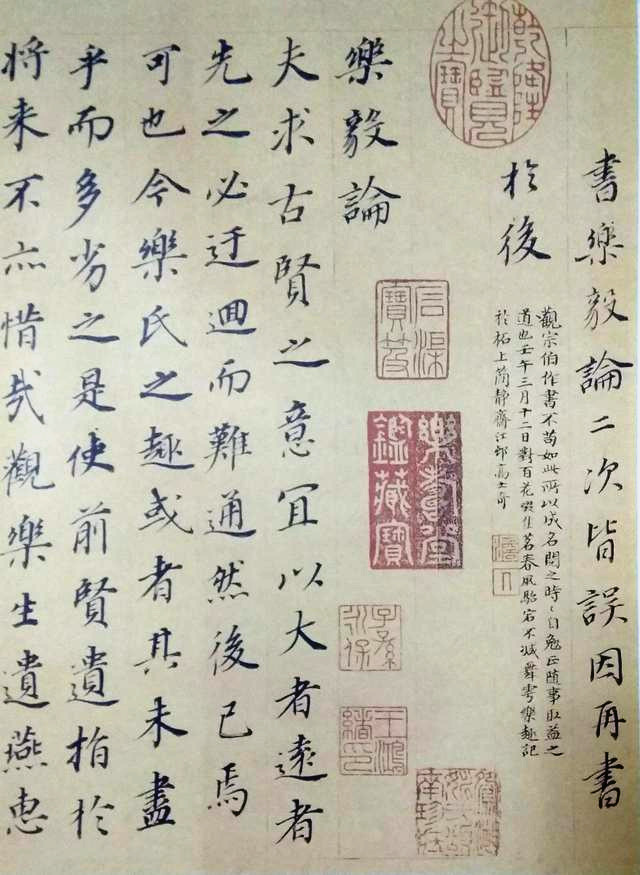 書樂毅論二次皆誤因再書
於後
觀宗伯作書不苟如此所以成名閱之時〻自勉正隨事取益之
道也壬午三月十二日對百花啜佳茗春風駘宕不減舞雩樂趣記
於柘上簡靜齋江邨高士奇
澹人
乾隆
御覽
之寶
石渠
寶笈
樂壽堂
鑑藏寶
子孫
永保
王鴻
緒印
樂毅論
夫求古賢之意宜以大者遠者
先之必迂迴而難通然後已焉
可也今樂氏之趣或者其未盡
乎而多劣之是使前賢遺指於
将来不亦惜哉觀樂生遺燕惠